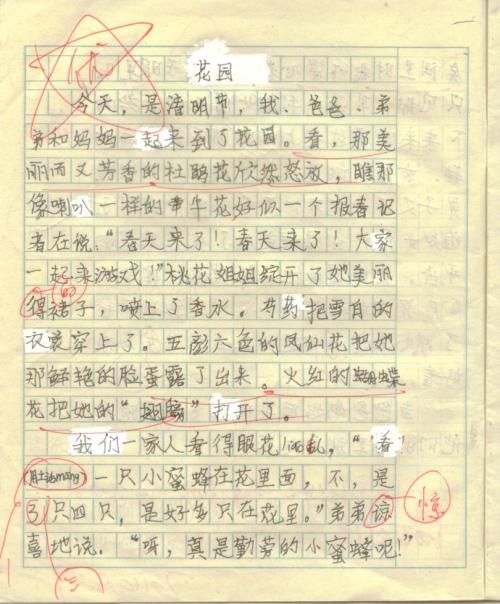 优
花园
今天，是清明节，我、爸爸、弟
弟和妈妈一起来到了花园。看，那美
丽而又芳香的杜鹃花欣然怒放，瞧那
像喇叭一样的牵牛花好似一个报春记
者在说：“春天来了！春天来了！大家
一起来游戏！”桃花姐姐绽开了她美丽
的
得裙子，喷上了香水。芍药把雪白的
衣裳穿上了。五彩六色的凤仙花把她
那鲜艳的脸蛋露了出来。火红的蝴蝶
花把她的“翅膀”打开了。
我们一家人看得眼花乱，“看
一只小蜜蜂在花里面，不，是
只四只，是好多只在花里。”弟弟谅
惊
喜地说。“呀，真是勤劳的小蜜蜂呢！”
三